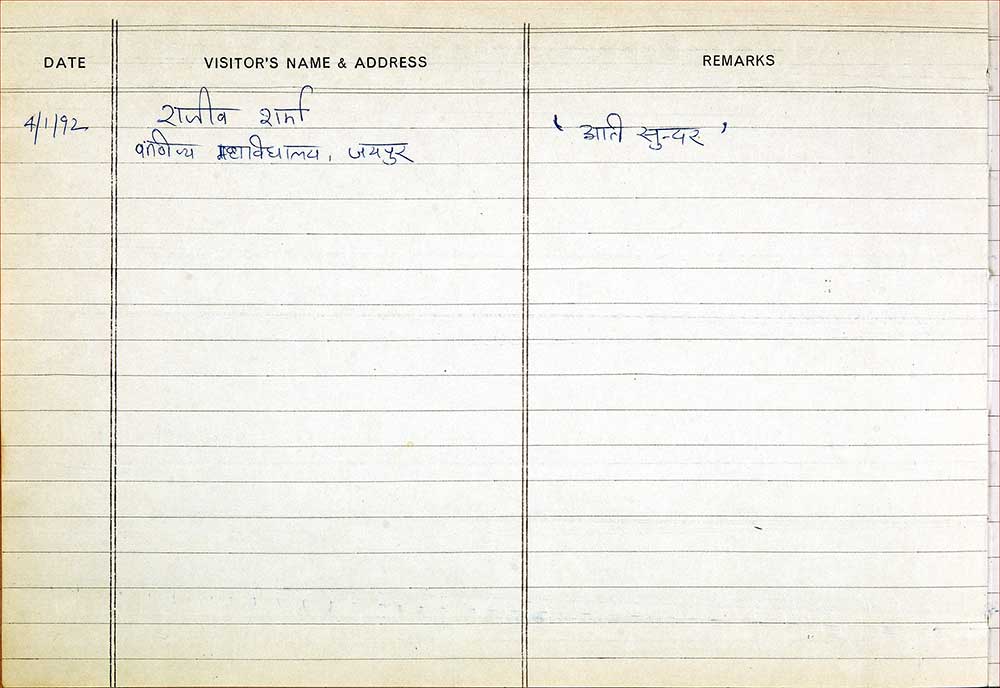 DATE VISITOR'S NAME & ADDRESS REMARKS
4/1/92 राजीव शर्मा ' अति सुन्दर '
वाणिज्य महाविद्यालय, जयपुर